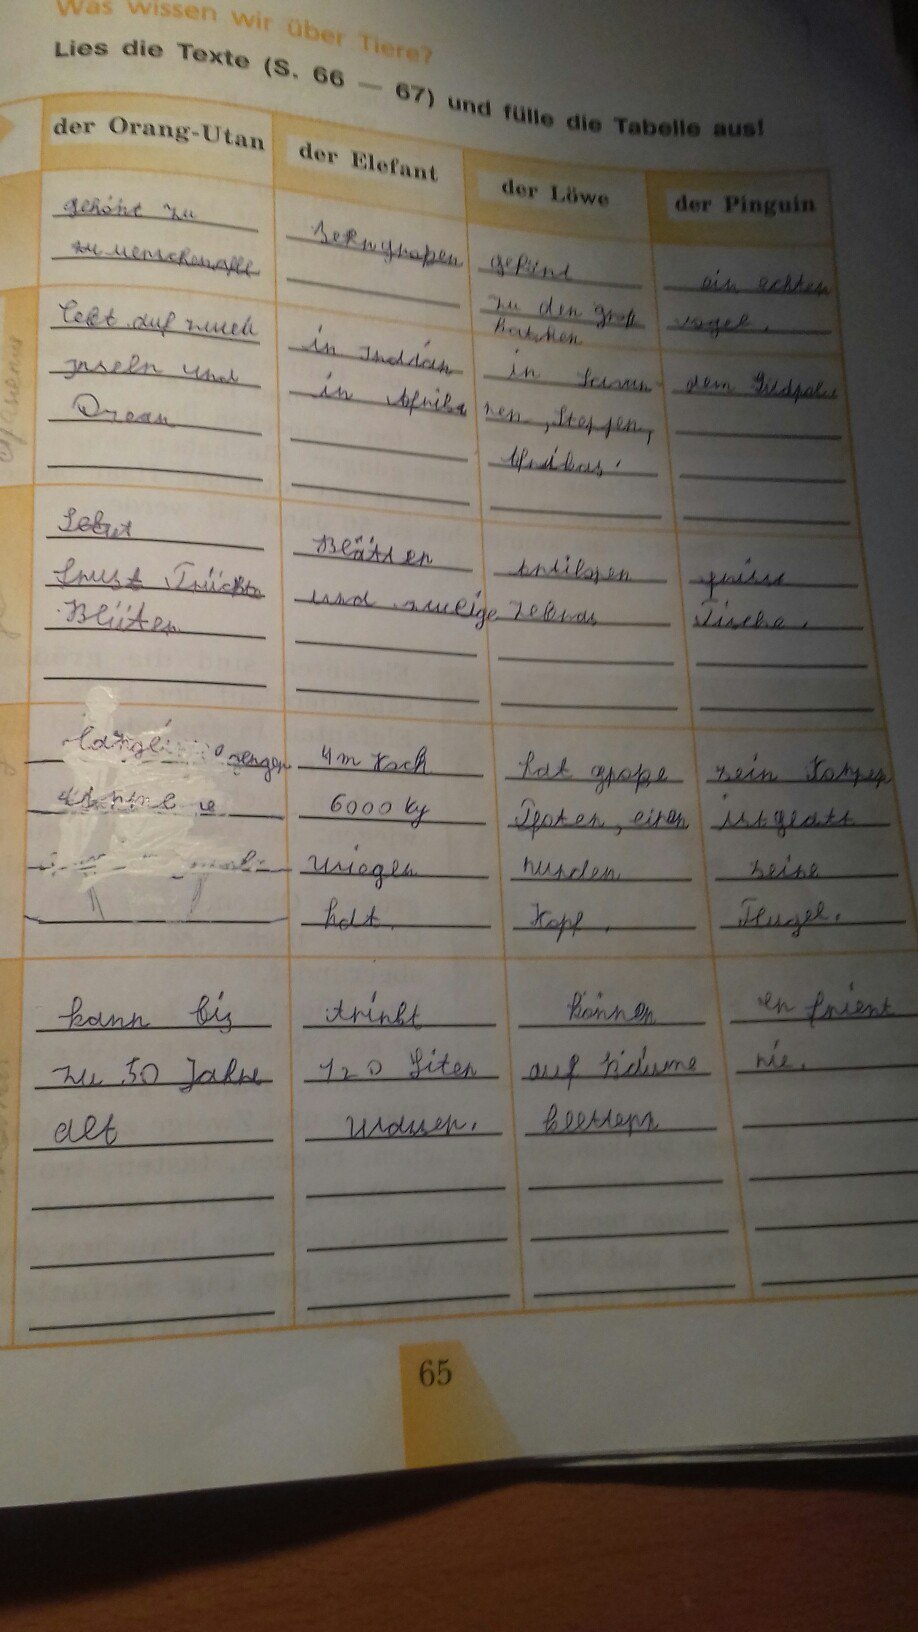 Was wissen wir über Tiere?
Lies die Texte (S. 66 — 67) und fülle die Tabelle aus!
der Orang-Utan
der Elefant
der Löwe
der Pinguin
gehört zu
zu menschenaffe
gehört
zu den groß
katzen
ein echter
vogel.
lebt auf zwei
Inseln und
in Indian
in Afrika
in Savan
nen, Steppen,
Afrikas.
dem Südpol
frisst Früchte
Blüten
Blätter
und zweige
antilopen
zebras
frisst
Fische.
4m hoch
6000 kg
wiegen
hat.
hat große
Pfoten, einen
runden
Kopf.
sein Körper
ist glatt
seine
Flugel.
kann bis
zu 50 Jahre
alt
trinkt
120 Liter
wasser.
können
auf Bäume
klettern
er friert
nie.
65